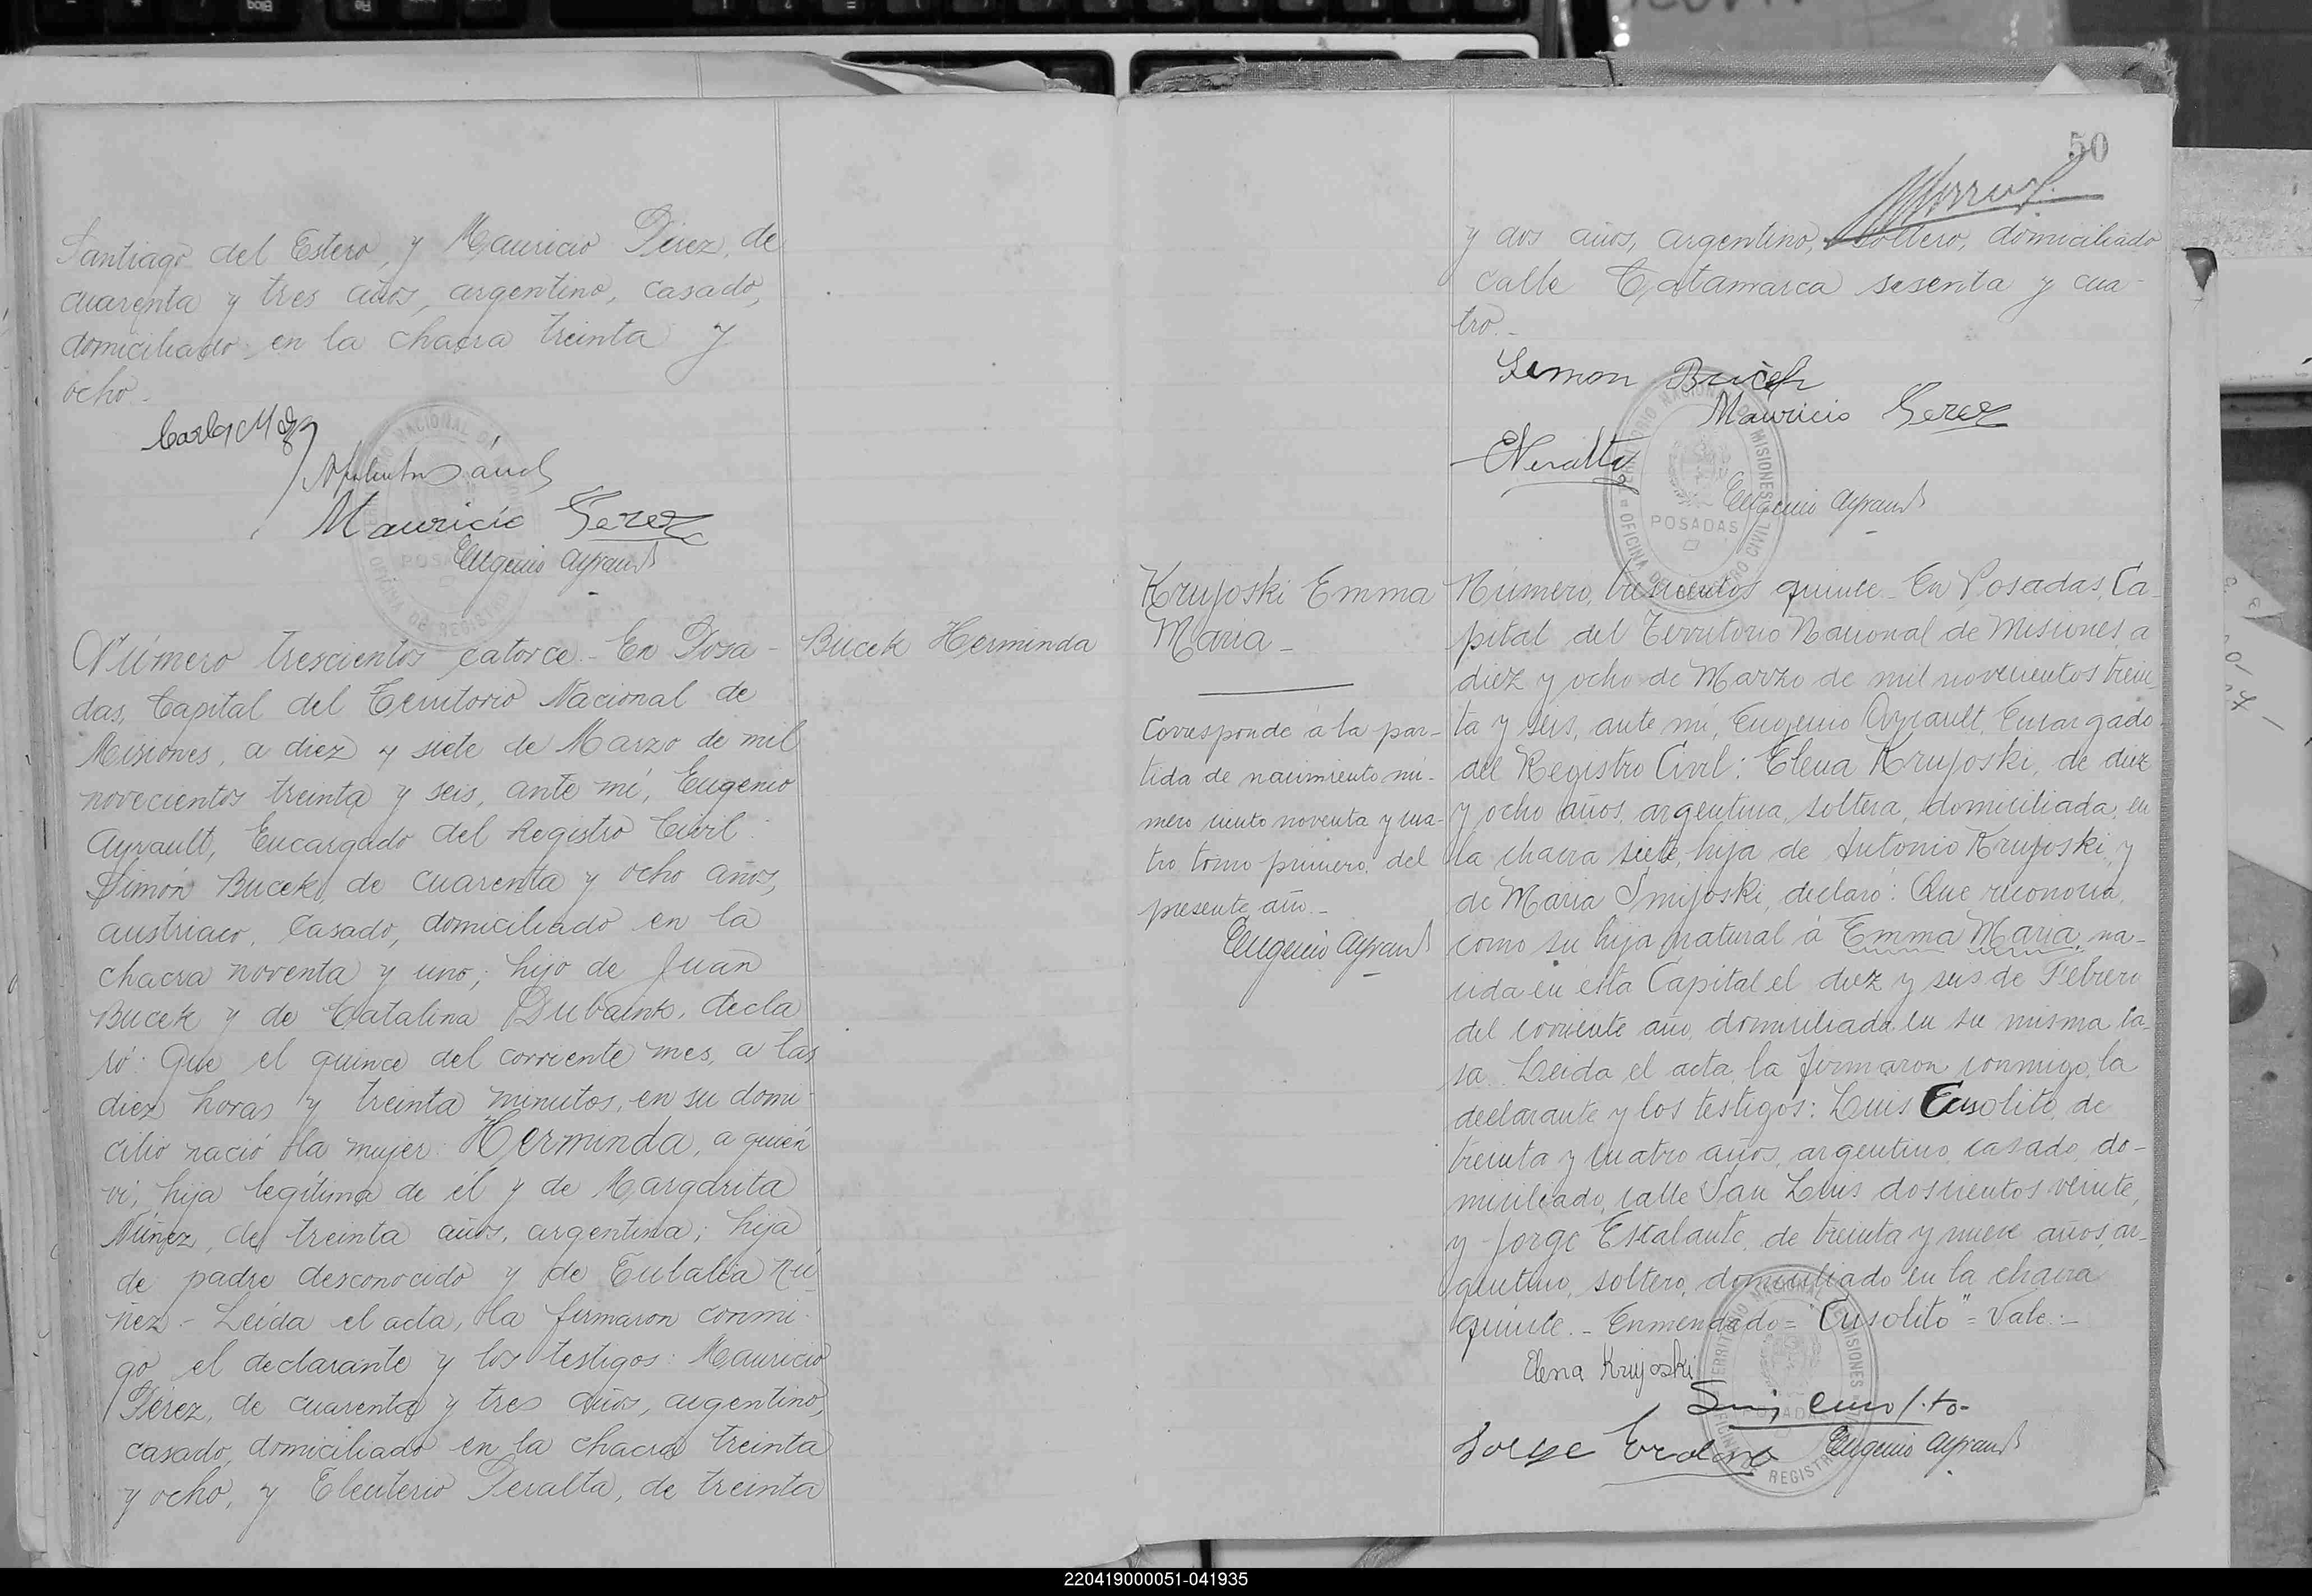 Santiago del Estero, y Mauricio Pérez, de
cuarenta y tres años, argentino, casado,
domiciliado en la chacra treinta y
ocho.-
Mauricio Perez
Eugenio Ayrault
Número trescientos catorce.- En Posa-
das, Capital del Territorio Nacional de
Misiones, a diez y siete de Marzo de mil
novecientos treinta y seis, ante mí, Eugenio
Ayrault, Encargado del Registro Civil:
Simón Bucek, de cuarenta y ocho años,
austriaco, casado, domiciliado en la
chacra noventa y uno; hijo de Juan
Bucek y de Catalina, decla
ró: Que el quince del corriente mes, a las
diez horas y treinta minutos, en su domi-
cilio nació la mujer: Herminda, a quién
vi; hija legítima de él y de Margarita
Núñez, de treinta años, argentina; hija
de padre desconocido y de Eulalia Nú-
ñez - Leída el acta, la firmaron conmi-
go el declarante y los testigos: Mauricio
Pérez, de cuarenta y tres años, argentino,
casado, domiciliado en la chacra treinta
y ocho, y Eleuterio Peralta, de treinta
Bucek Herminda
50
y dos años, argentino, soltero, domiciliado
calle Catamarca sesenta y cua-
tro.-
Simon Bucek
Mauricio Perez
EPeralta
Eugenio Ayrault
TERRITORIO NACIONAL DE MISIONES
POSADAS
OFICINA DE REGISTRO CIVIL
Krujoski Emma
Maria.-
Corresponde á la par-
tida de nacimiento nú-
mero ciento noventa y cua-
tro, tomo primero, del
presente año.-
Eugenio Ayrault
Número, trescientos quince.- En Posadas, Ca-
pital del Territorio Nacional de Misiones, a
diez y ocho de Marzo de mil novecientos trein-
ta y seis, ante mí, Eugenio Ayrault, Encargado
del Registro Civil: Elena Krujoski, de diez
y ocho años, argentina, soltera, domiciliada en
la chacra siete, hija de Antonio Krujoski, y
de Maria Smijoski, declaró: Que reconocía
como su hija natural á Emma Maria, na-
cida en esta Capital el diez y seis de Febrero
del corriente año, domiciliada en su misma ca-
sa. Leida el acta, la firmaron conmigo, la
declarante y los testigos: Luis Cusolito, de
treinta y cuatro años, argentino, casado, do-
miciliado, calle San Luis doscientos veinte,
y Jorge Escalante, de treinta y nueve años, ar-
gentino, soltero, domiciliado en la chacra
quince.- Enmendado = "Cusolito" = Vale:-
Elena Krujoski
Luis Cusolito-
Jorge
Eugenio Ayrault
220419000051-041935